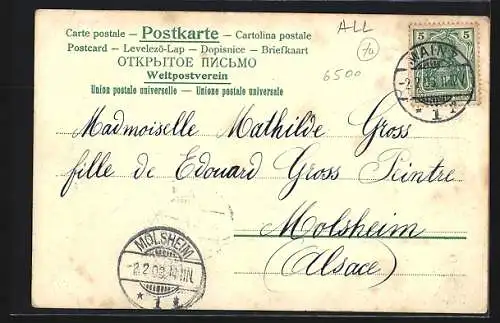 Carte postale – Postkarte – Cartolina postale
Postcard – Levelező-Lap – Dopisnice – Briefkaart
ОТКРЫТОЕ ПИСЬМО
Weltpostverein
Union postale universelle – Unione postale universale
ALL
7a
6500
5 5
MAINZ
* 1 *
Madmoiselle Mathilde Gross
fille de Edouard Gross Peintre
Molsheim
(Alsace)
MOLSHEIM
* 1 *